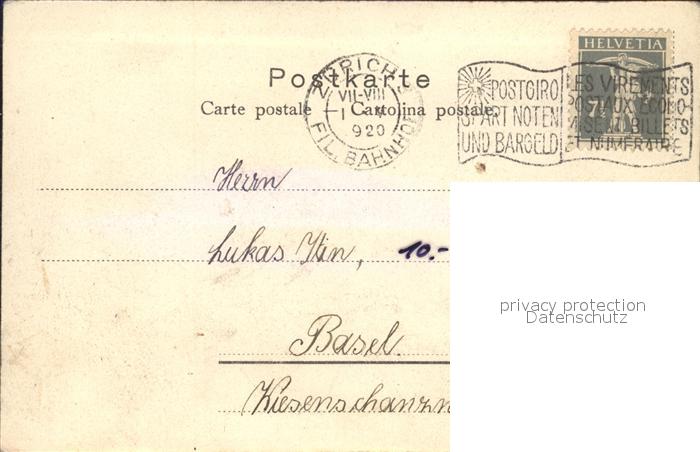 Postkarte
Carte postale — Cartolina postale.
ZÜRICH
VII-VIII
1
920
FIL. BAHNHOF
POSTGIRO
SPART NOTEN
UND BARGELD
LES VIREMENTS
POSTAUX ÉCONO-
BILLETS
ET NUMÉRAIRE
HELVETIA
7½
Herrn
Lukas Itin, 10.-
Basel.
privacy protection
Datenschutz